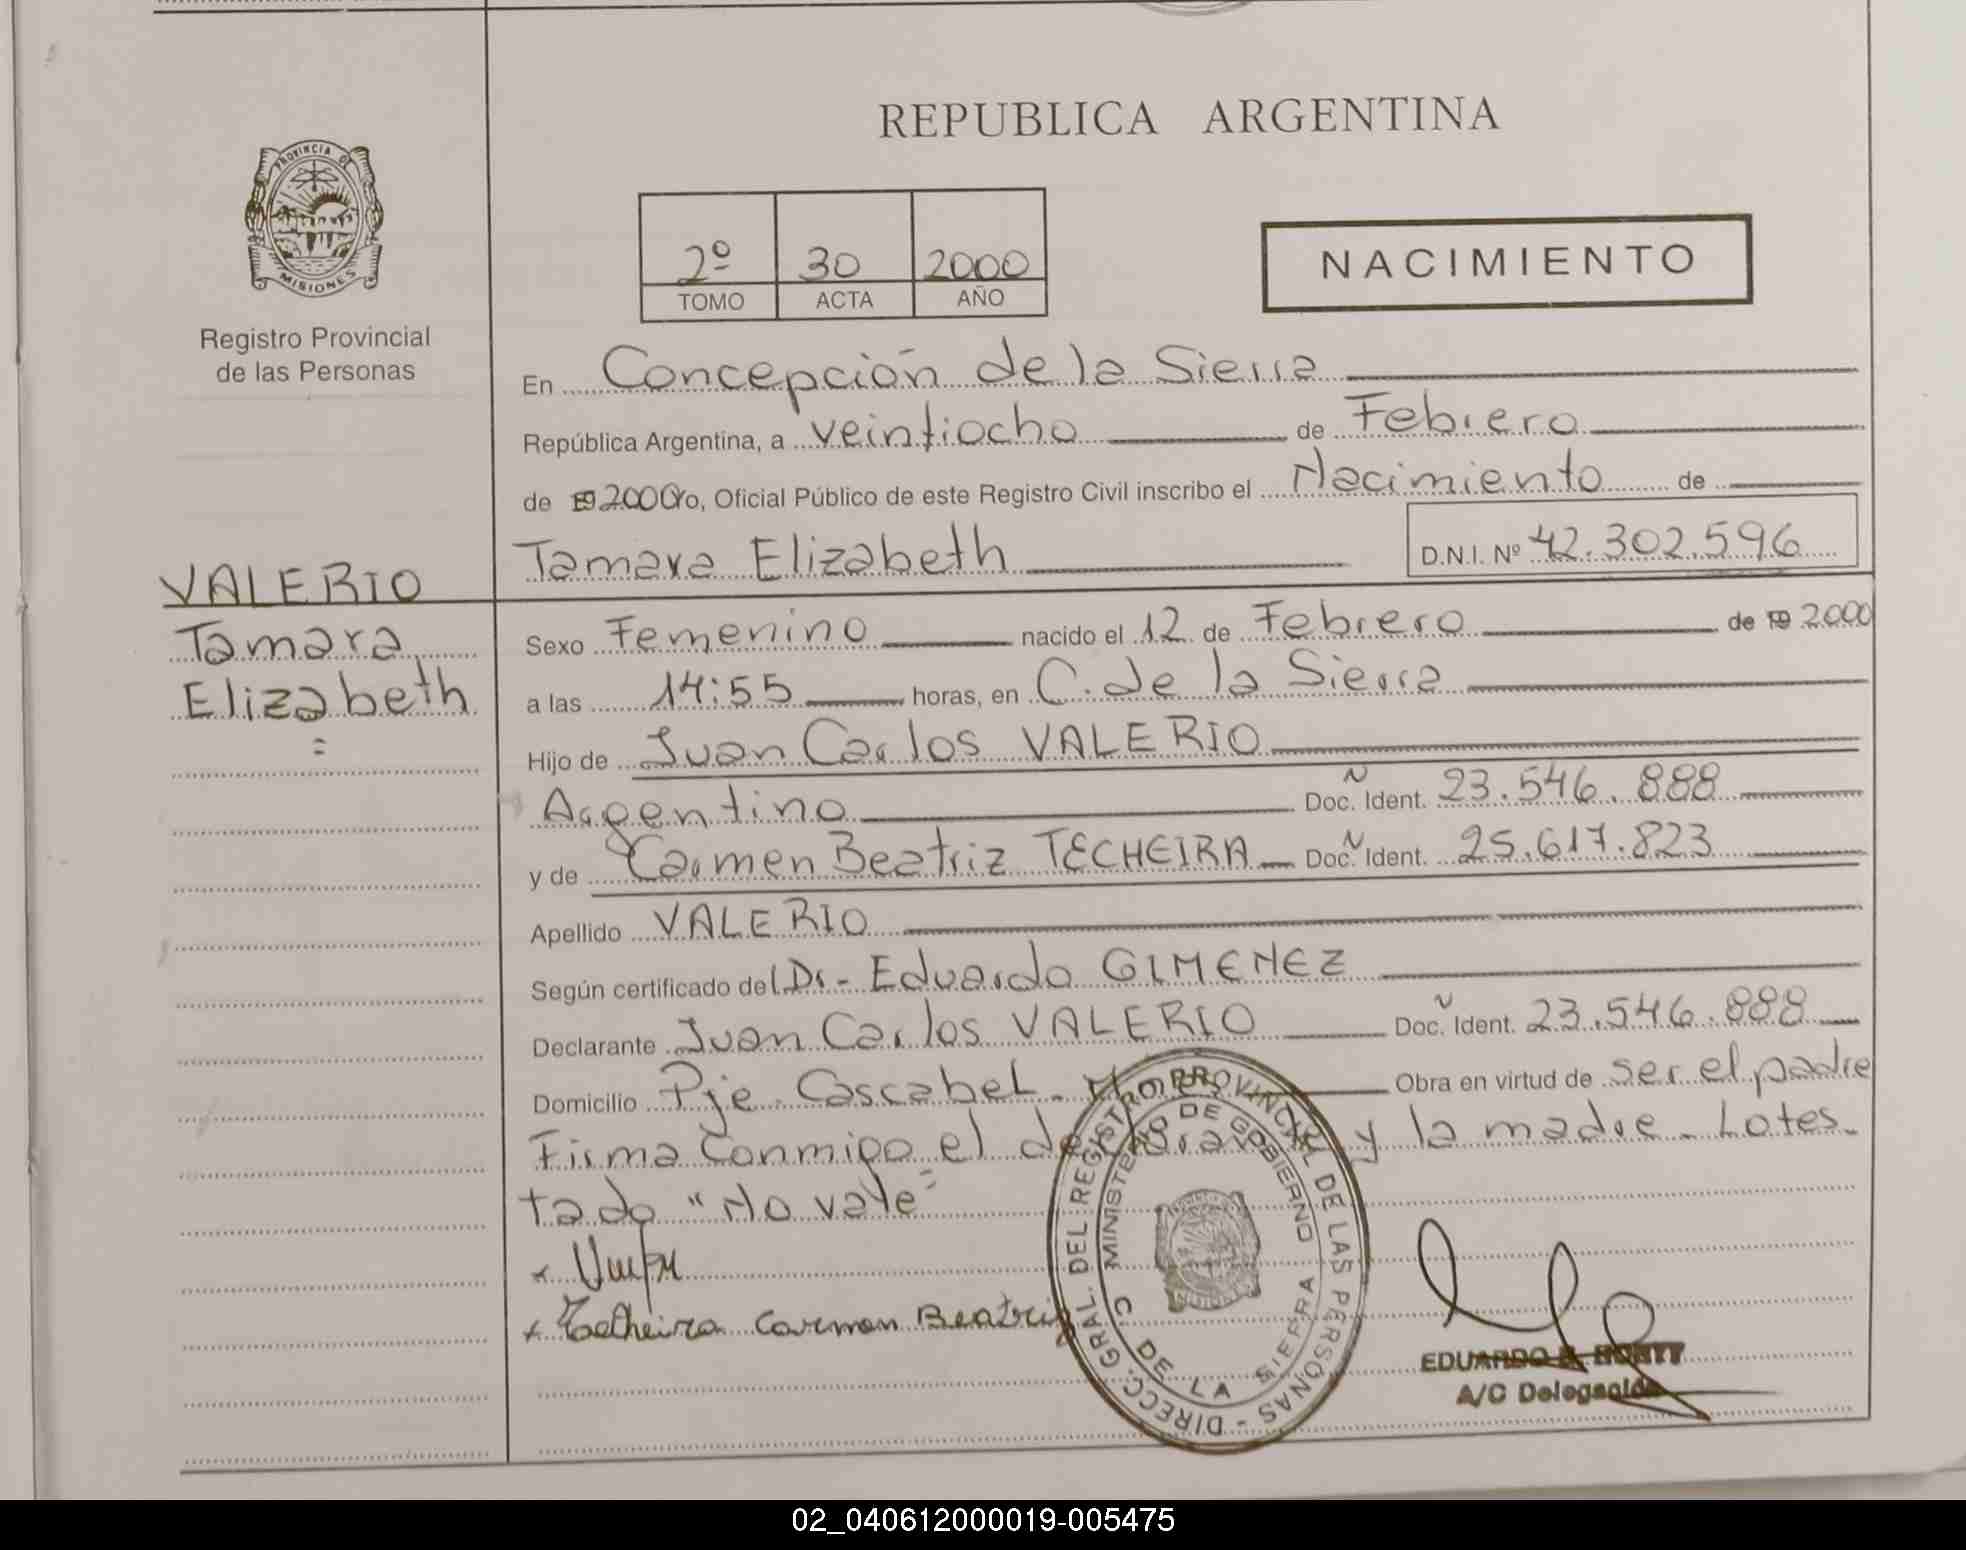 REPUBLICA ARGENTINA
PROVINCIA DE
MISIONES
Registro Provincial
de las Personas
2º 30 2000
TOMO ACTA AÑO
NACIMIENTO
En Concepción de la Sierra
República Argentina, a veintiocho de Febrero
de 19 2000 Yo, Oficial Público de este Registro Civil inscribo el Nacimiento de
Tamara Elizabeth D.N.I. Nº 42.302.596
VALERIO
Tamara
Elizabeth
Sexo Femenino nacido el 12 de Febrero de 19 2000
a las 14:55 horas, en C. de la Sierra
Hijo de Juan Carlos VALERIO
Argentino Doc. Ident. 23.546.888
y de Carmen Beatriz TECHEIRA Doc. Ident. 25.617.823
Apellido VALERIO
Según certificado del Dr- Eduardo GIMENEZ
Declarante Juan Carlos VALERIO Doc. Ident. 23.546.888
Domicilio Pje. Cascabel. Obra en virtud de ser el padre
Firma Conmigo el declarante y la madre - Lo tes-
tado "No vale"
Techeira Carmen Beatriz
DIRECC. GRAL. DEL REGISTRO PROVINCIAL DE LAS PERSONAS -
MINISTERIO DE GOBIERNO
C. DE LA SIERRA
EDUARDO
A/C Delegación
02_040612000019-005475